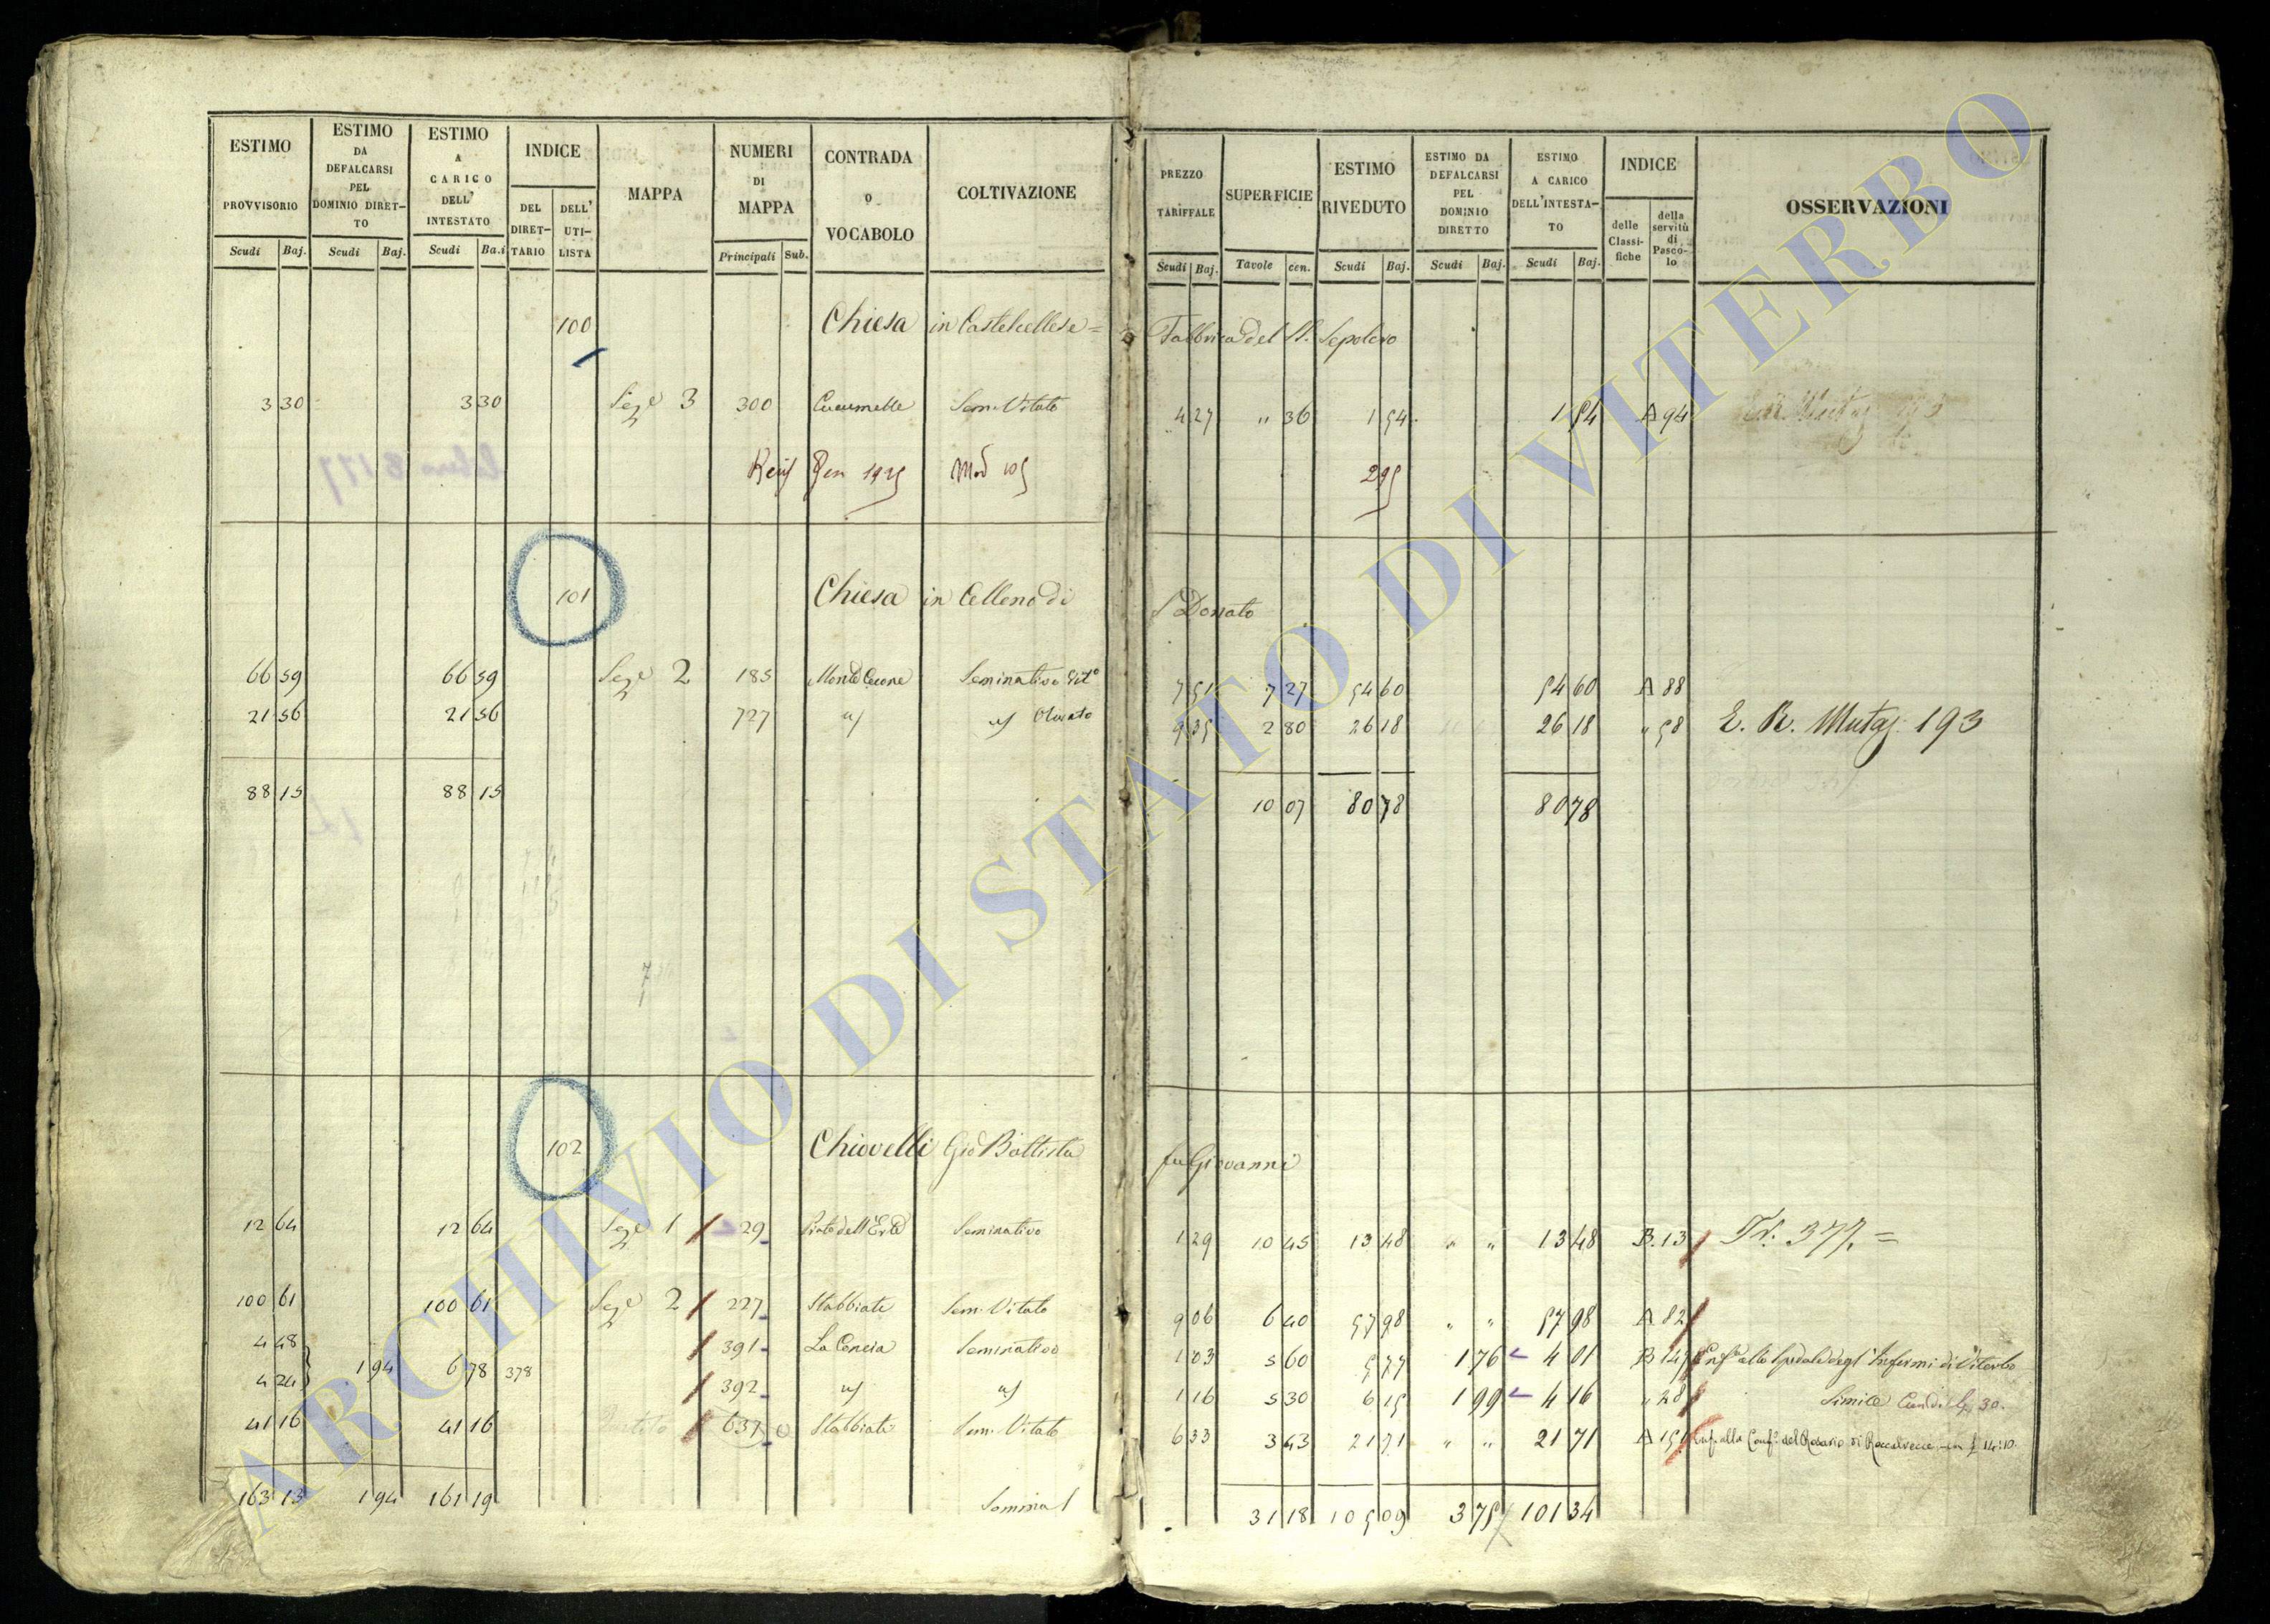 ESTIMO PROVVISORIO
ESTIMO DA DEFALCARSI PEL DOMINIO DIRET-TO
ESTIMO A CARICO DELL' INTESTATO
INDICE
DEL DIRET-TARIO
DELL' UTI-LISTA
MAPPA
NUMERI DI MAPPA
CONTRADA O VOCABOLO
COLTIVAZIONE
PREZZO TARIFFALE
SUPERFICIE
ESTIMO RIVEDUTO
ESTIMO DA DEFALCARSI PEL DOMINIO DIRETTO
ESTIMO A CARICO DELL'INTESTA-TO
INDICE
delle Classi-fiche
della servitù di Pasco-lo
OSSERVAZIONI
Scudi Baj. Scudi Baj. Scudi Ba.i Principali Sub.
Scudi Baj. Tavole cen. Scudi Baj. Scudi Baj. Scudi Baj.
100 Chiesa in Castelcellese = Fabbrica del SS. Sepolcro
3 30 3 30 Sez.e 3 300 Cucumelle Sem. Vitato 4 27 " 36 1 54 1 54 A 94
Mod 105 295
101 Chiesa in Celleno di S Donato
66 59 66 59 Sez.e 2 185 Monte Cerone Seminativo Vit.o 7 51 7 27 54 60 54 60 A 88
21 56 21 56 727 " " Olivato 9 35 2 80 26 18 26 18 " 58 E. R. Mutaz. 193
88 15 88 15 10 07 80 78 80 78
102 Chiovelli Gio Battista fu Giovanni
12 64 12 64 Sez.e 1 29 Seminativo 1 29 10 45 13 48 " " 13 48 B. 13 Tr. 377. =
100 61 100 61 Sez.e 2 227 Stabbiate Sem. Vitato 9 06 6 40 57 98 " " 57 98 A 82
4 48 391 La Concia Seminativo 1 03 5 60 5 77 1 76 4 01 B 147 Enf.a allo Spedale degl'Infermi di Viterbo
4 24 1 94 6 78 378 392 " " 1 16 5 30 6 15 1 99 4 16 " 28 Simile 30.
41 16 41 16 637 Stabbiate Sem. Vitato 6 33 3 43 21 71 " " 21 71 A 151 Enf. alla Conf.a del Rosario di Roccalvecce
163 13 1 94 161 19 Somma 31 18 105 09 3 75 101 34
ARCHIVIO DI STATO DI VITERBO